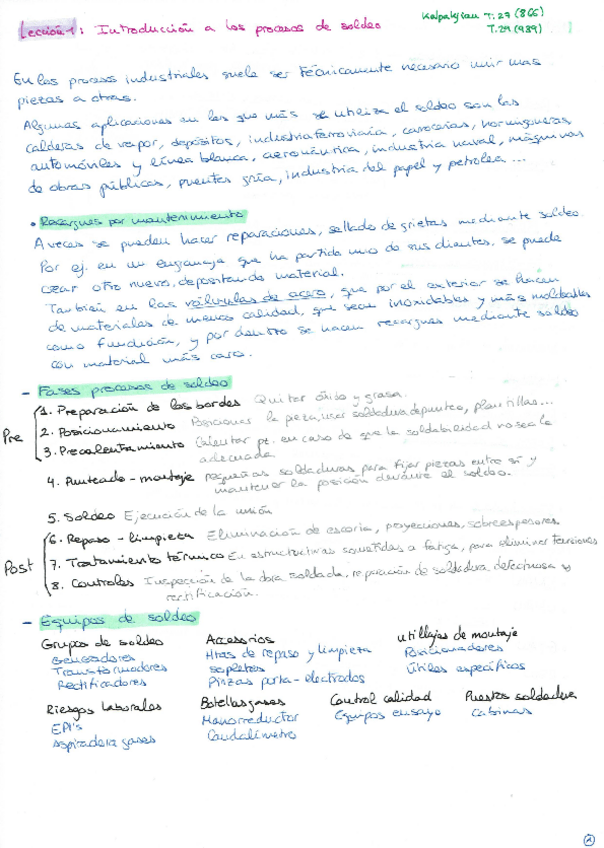 Lección 1: Introducción a los procesos de soldeo
Kalpakjian T.27 (866)
T.29 (989)
En los procesos industriales suele ser técnicamente necesario unir unas
piezas a otras.
Algunas aplicaciones en las que más se utiliza el soldeo son las
calderas de vapor, depósitos, industria ferroviaria, carrocerías, hormigoneras,
automóviles y línea blanca, aeronáutica, industria naval, máquinas
de obras públicas, puentes grúa, industria del papel y petrolea...
• Recargues por mantenimiento
A veces se pueden hacer reparaciones, sellado de grietas mediante soldeo
Por ej. en un engranaje que ha partido uno de sus dientes, se puede
crear otro nuevo, depositando material.
También en las válvulas de acero, que por el exterior se hacen
de materiales de menos calidad, que sean inoxidables y más moldeables
como fundición, y por dentro se hacen recargues mediante soldeo
con material más caro.
- Fases procesos de soldeo
Pre
1. Preparación de los bordes Quitar óxido y grasa.
2. Posicionamiento Posicionar la pieza, usar soldadura de punteo, plantillas...
3. Precalentamiento Calentar pz. en caso de que la soldabilidad no sea la
adecuada.
4. Punteado - montaje pequeñas soldaduras para fijar piezas entre sí y
mantener la posición durante el soldeo.
5. Soldeo Ejecución de la unión
Post
6. Repaso - limpieza Eliminación de escoria, proyecciones, sobreespesores
7. Tratamiento térmico En estructuras sometidas a fatiga, para eliminar tensiones
8. Controles Inspección de la obra soldada, reparación de soldadura defectuosa y
rectificación.
- Equipos de soldeo
Grupos de soldeo
Generadores
Transformadores
Rectificadores
Accesorios
Htas de repaso y limpieza
sopletes
Pinzas porta-electrodos
utillajes de montaje
Posicionadores
Útiles específicos
Riesgos laborales
EPI's
Aspiradora gases
Botellas gases
Manorreductor
Caudalímetro
Control calidad
Equipos ensayo
Puestos soldadura
Cabinas